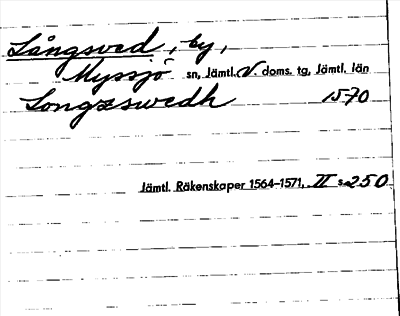 Långsved, by,
Myssjö sn, Jämtl. V. doms. tg, Jämtl. län
Longzswedh 1570
Jämtl. Räkenskaper 1564–1571, II s. 250